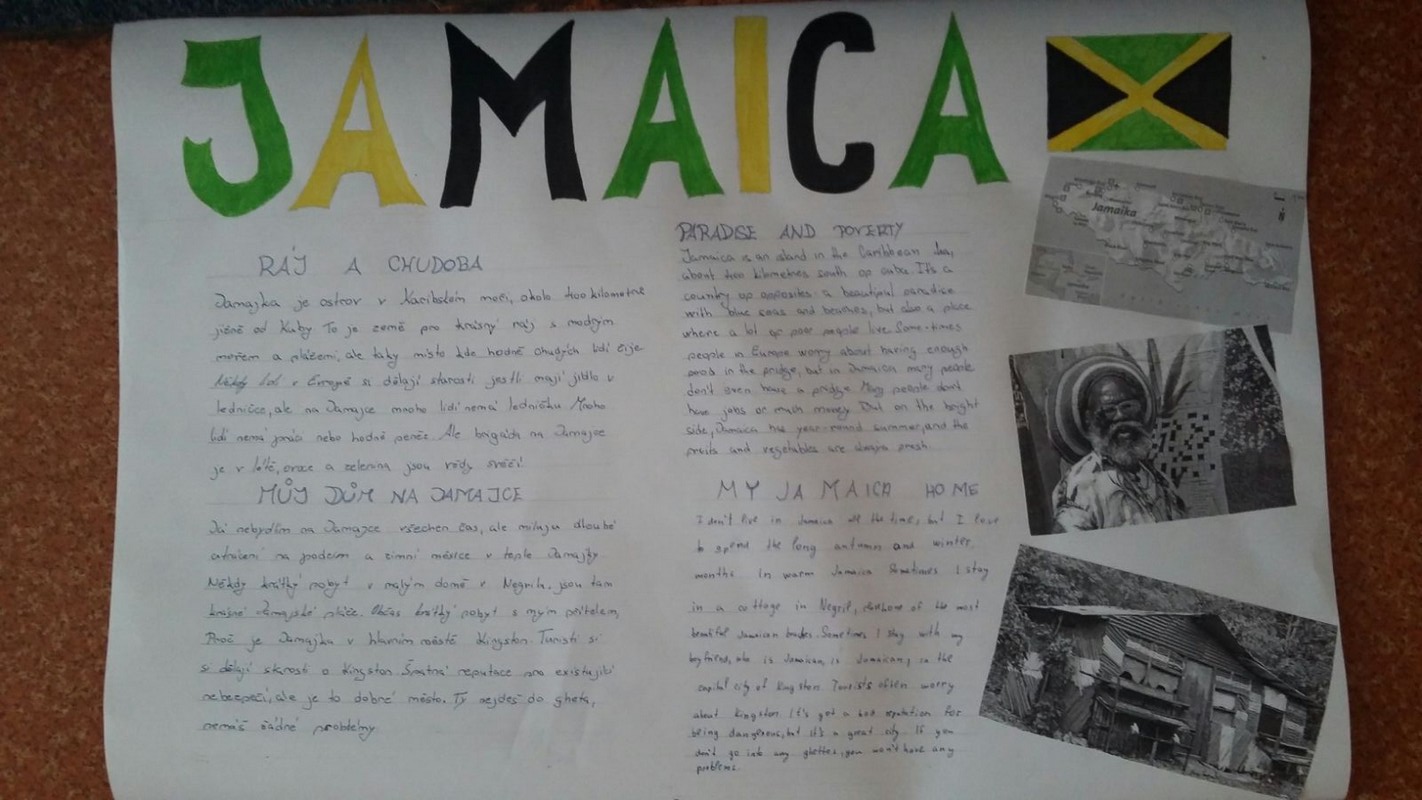 JAMAICA
RÁJ A CHUDOBA
Jamajka je ostrov v Karibském moři, okolo 400 kilometrů
jižně od Kuby To je země pro krásný ráj s modrým
mořem a plážemi, ale taky místo kde hodně chudých lidí žije
Někdy lidi v Evropě si dělají starosti jestli mají jídlo v
ledničce, ale na Jamajce mnoho lidí nemá ledničku Mnoho
lidí nemá práci nebo hodně peněz. Ale brigáda na Jamajce
je v létě, ovoce a zelenina jsou vždy svěží!
MŮJ DŮM NA JAMAJCE
Já nebydlím na Jamajce všechen čas, ale miluju dlouhé
na podzim a zimní měsíce v teple Jamajky
Někdy krátký pobyt v malým domě v Negrilu. jsou tam
krásné Jamajské pláže. Občas krátký pobyt s mým přítelem,
Proč je Jamajka v hlavním městě Kingston. Turisti si
si dělají starosti o Kingston. Špatná reputace pro existující
nebezpečí, ale je to dobré město. Ty nejdeš do gheta,
nemáš žádné problémy
PARADISE AND POVERTY
Jamaica is an island in the Caribbean Sea,
about 400 kilometres south of Cuba. It's a
country of opposites: a beautiful paradise
with blue seas and beaches, but also a place
where a lot of poor people live. Some-times
people in Europe worry about having enough
food in the fridge, but in Jamaica many people
don't even have a fridge. Many people don't
have jobs or much money. But on the bright
side, Jamaica has year-round summer, and the
fruits and vegetables are always fresh.
MY JAMAICA HOME
I don't live in Jamaica all the time, but I love
to spend the long autumn and winter
months in warm Jamaica Sometimes I stay
in a cottage in Negril, one of the most
beautiful Jamaican. Sometimes I stay with my
boyfriend, who is Jamaican, is Jamaican, in the
capital city of Kingston. Tourists often worry
about Kingston. It's got a bad reputation for
being dangerous, but it's a great city. If you
don't go into any ghettos, you won't have any
problems.
Jamaika